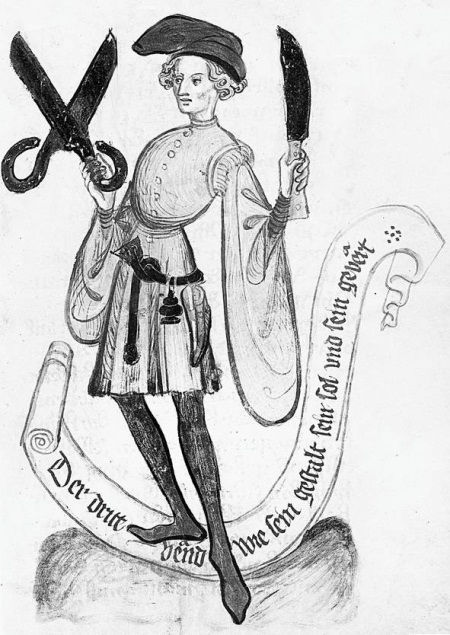 Der dritt vend wie sein gestalt sein sol vnd sein gebert